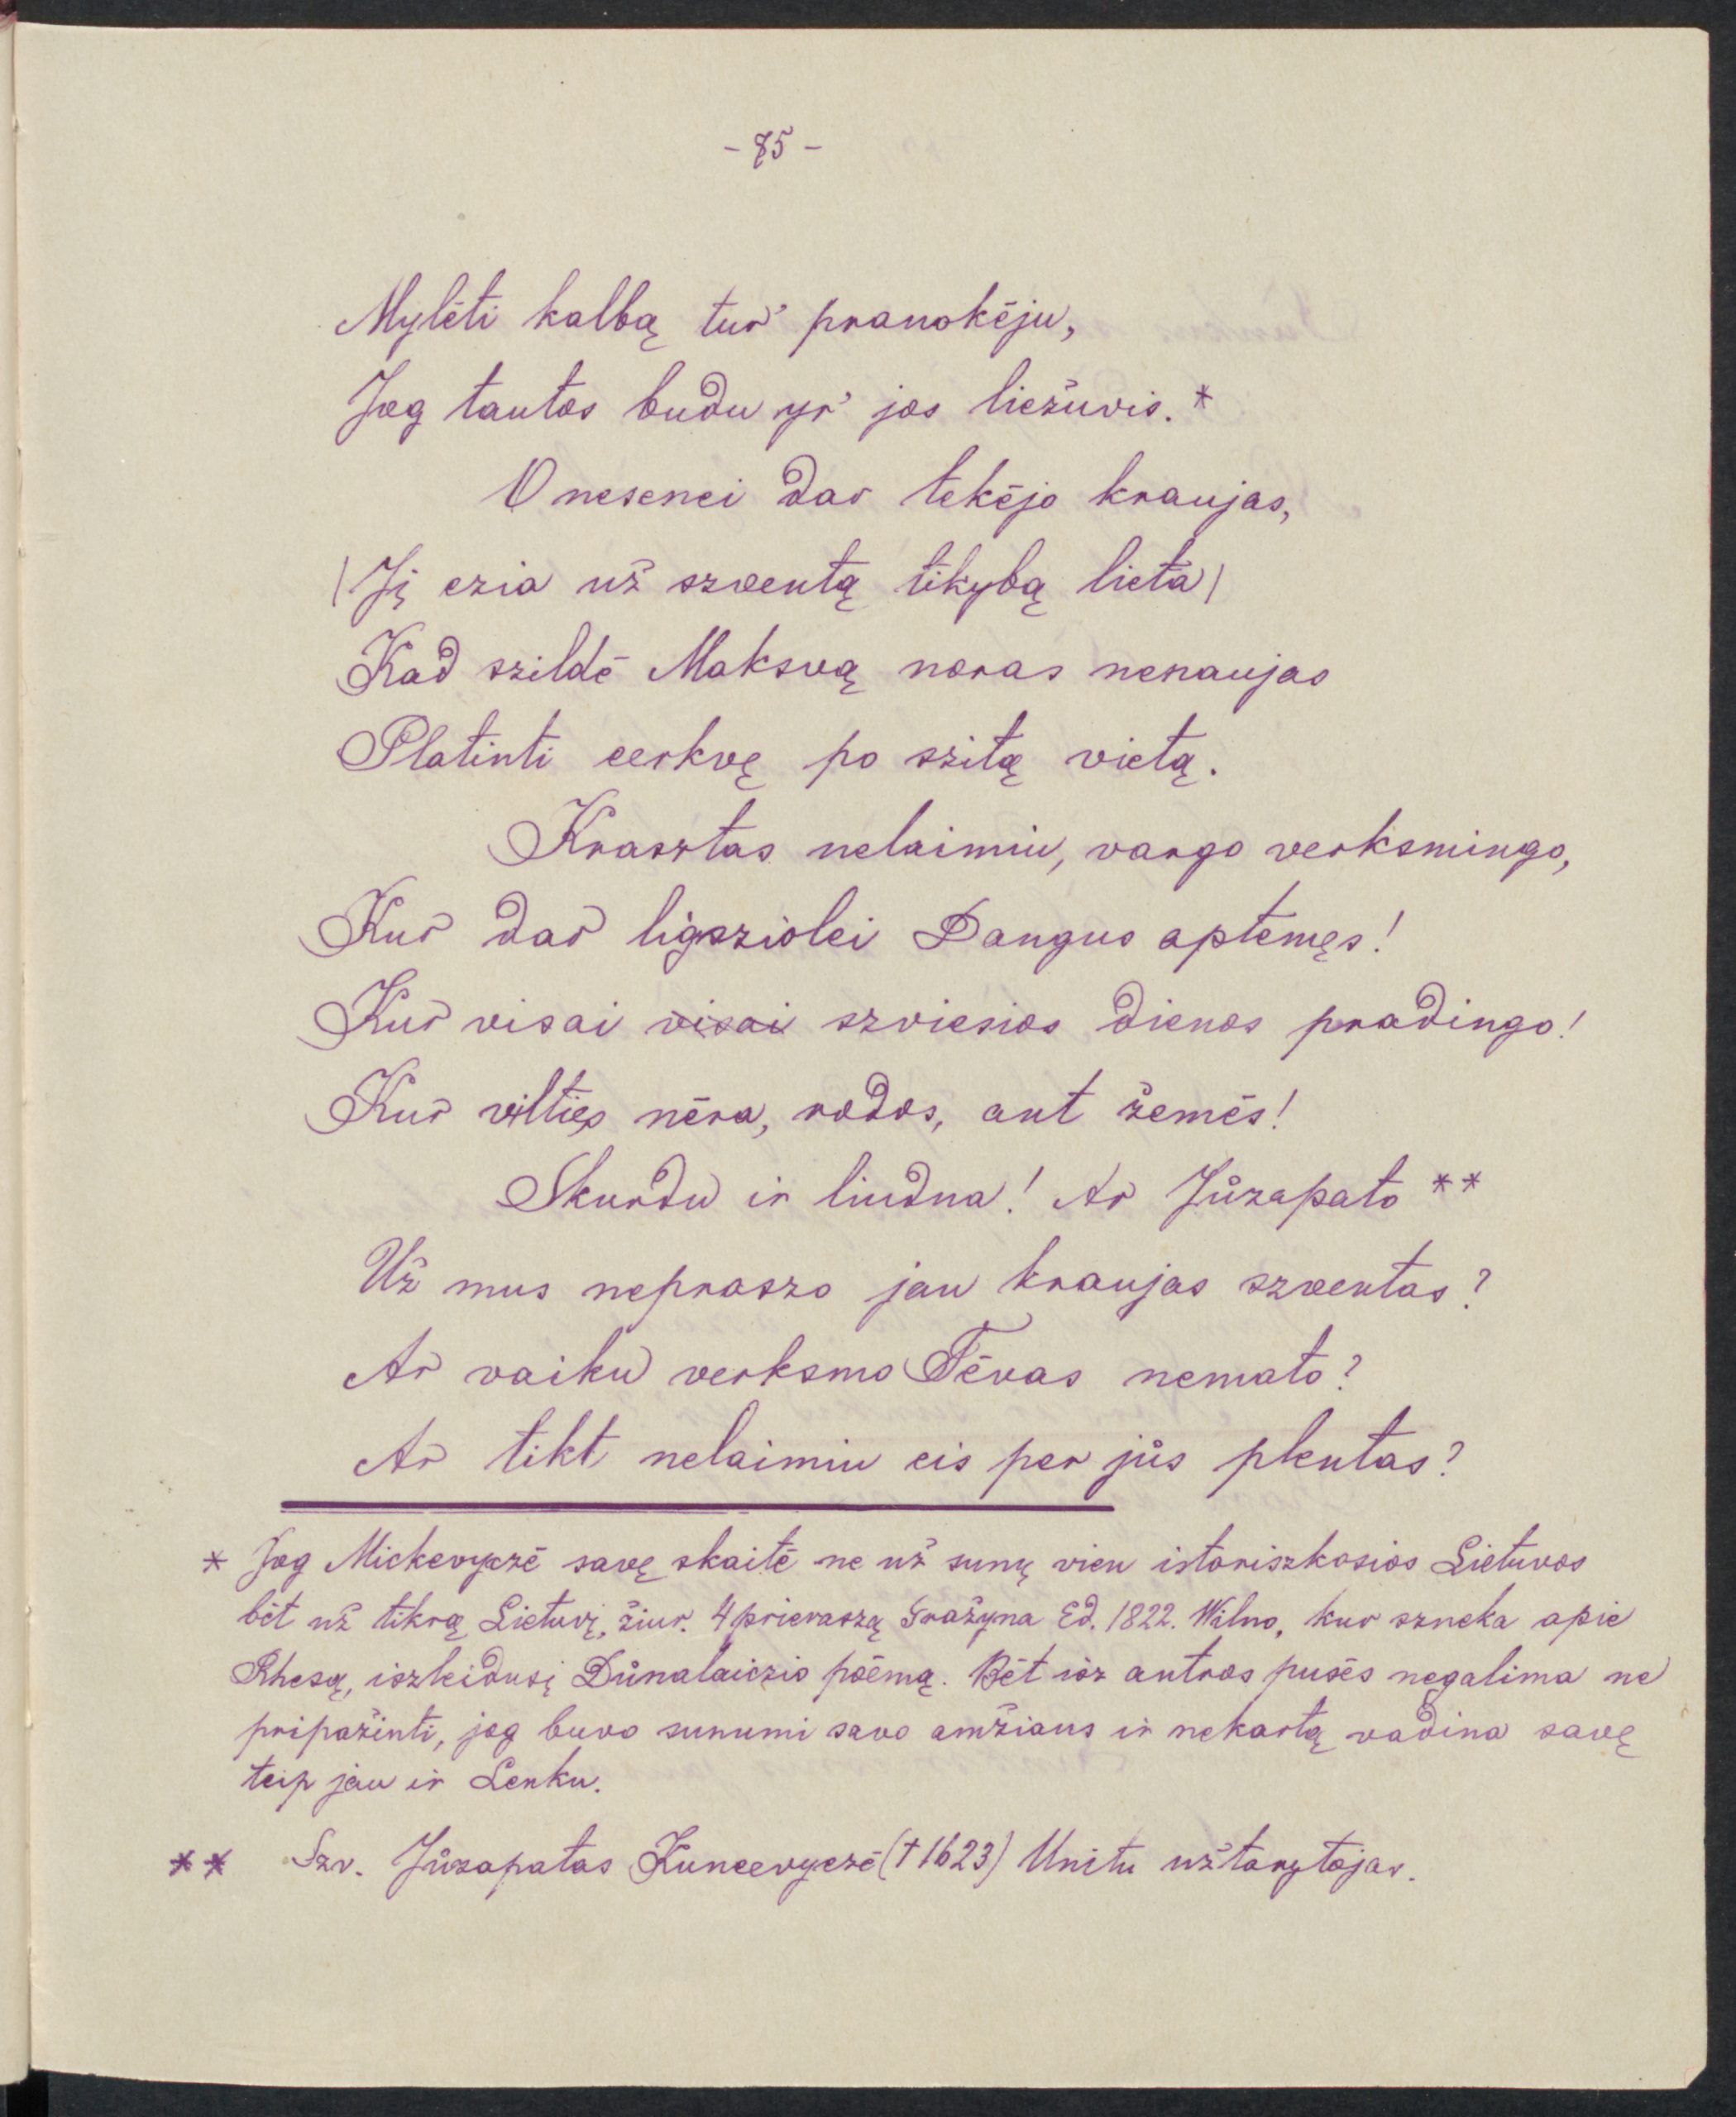 - 85 -
Mylėti kalbą tur' pranokėju,
Jog tautos budu yr' jos liežuvis. *
O nesenei dar tekėjo kraujas,
(Jį czia už szventą tikybą lieta)
Kad szildė Maksvą noras nenaujas
Platinti cerkvę po szitą vietą.
Krasztas nelaimiu, vargo verksmingo,
Kur dar ligsziolei Dangus aptemęs!
Kur visai visai szviesios dienos pradingo!
Kur vilties nėra, rodos, ant žemės!
Skurdu ir liudna! Ar Jůzapato **
Už mus nepraszo jau kraujas szventas?
Ar vaiku verksmo Tėvas nemato?
Ar tikt nelaimiu eis per jůs plentas?
* Jog Mickevyczė savę skaitė ne už sunų vien istoriszkosios Lietuvos
bėt už tikrą Lietuvį, žiur. 4 prieraszą Gražyna Ed. 1822. Wilno, kur szneka apie
Rhesą, iszleidusį Důnalaiczio poėmą. Bėt isz antros pusės negalima ne
pripažinti, jog buvo sunumi savo amžiaus ir nekartą vadina savę
teip jau ir Lenku.
** Szv. Jůzapatas Kuncevyczė († 1623) Unitu užtarytojas.